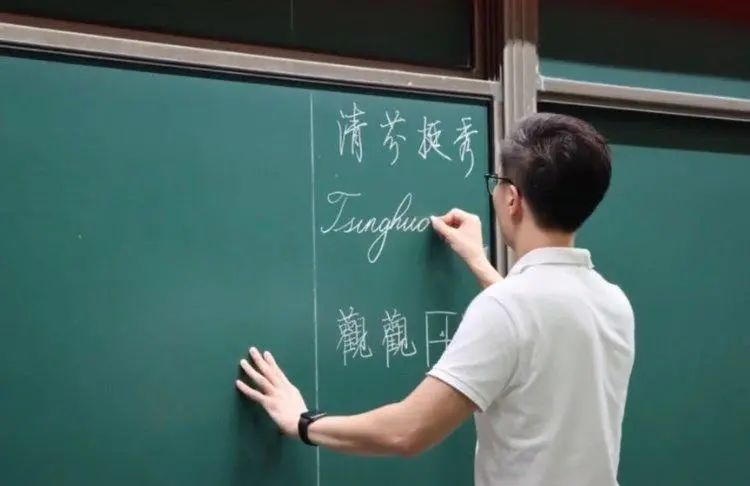 清芬挺秀
Tsinghua
觀觀